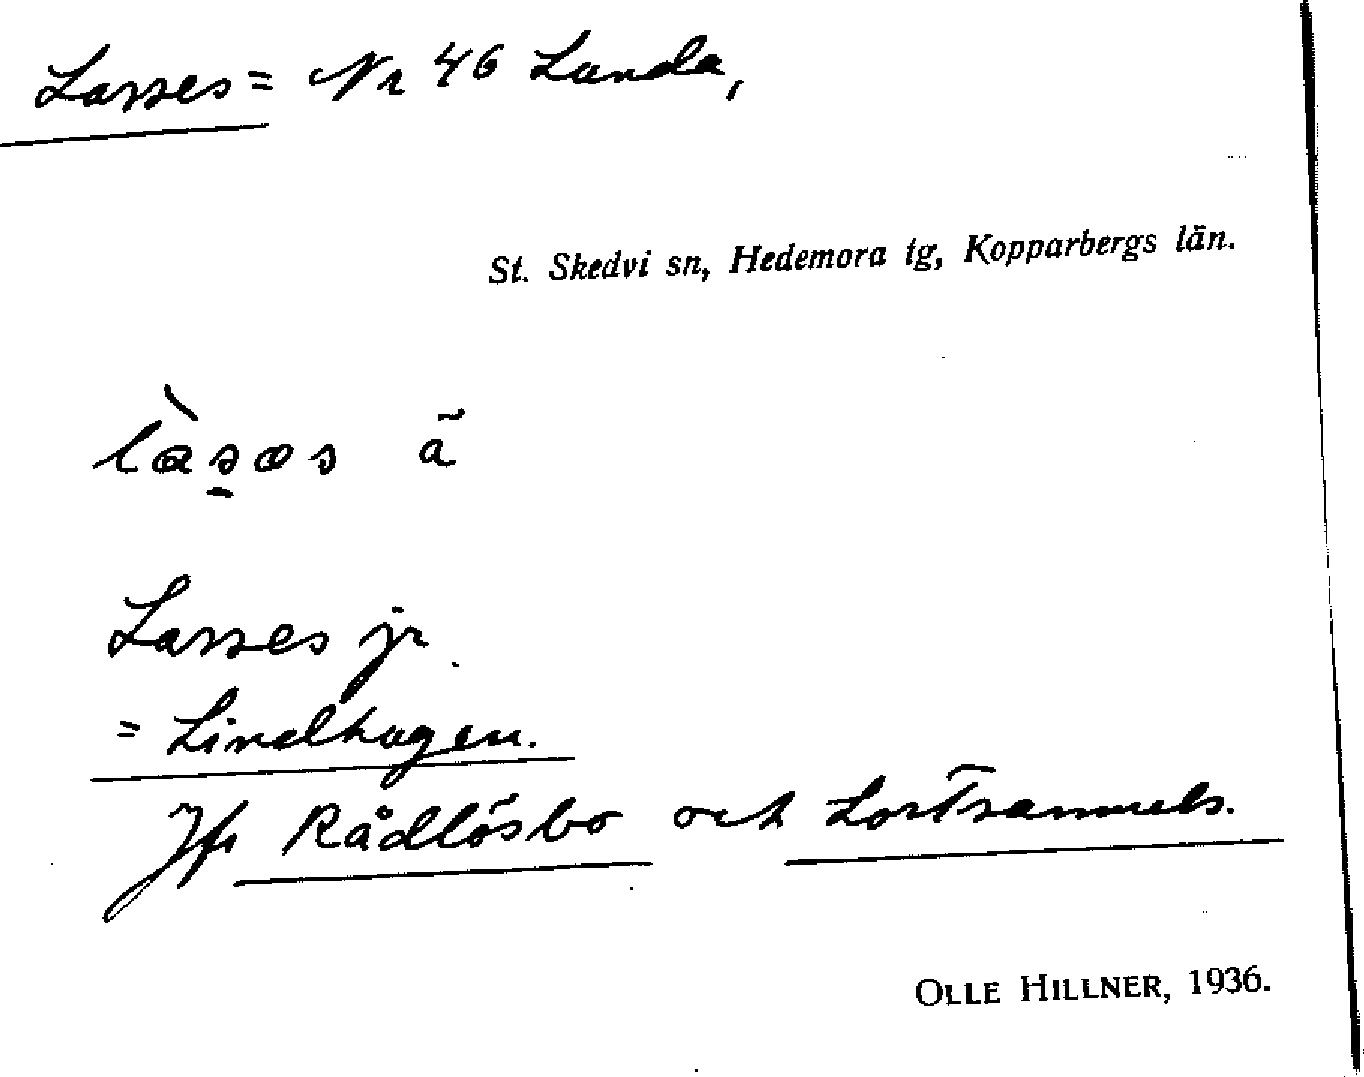 Lasses = Nr 46 Landa,
St. Skedvi sn, Hedemora tg, Kopparbergs län.
làs̱øs ã
Lasses jr.
= Lindhagen.
Jfr Rådlösbo och Lortsamuels.
OLLE HILLNER, 1936.